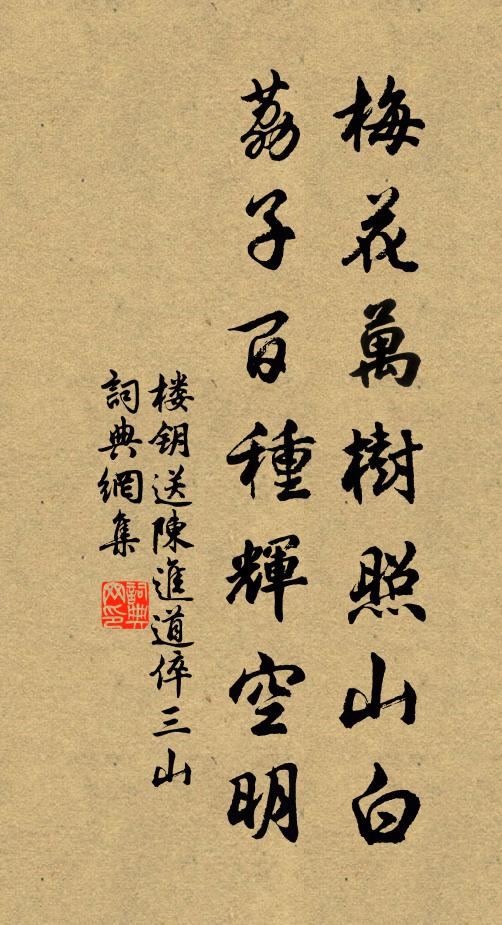 梅花萬樹照山白
荔子百種輝空明
楼钥送陳進道倅三山
詞典網集
詞典网印